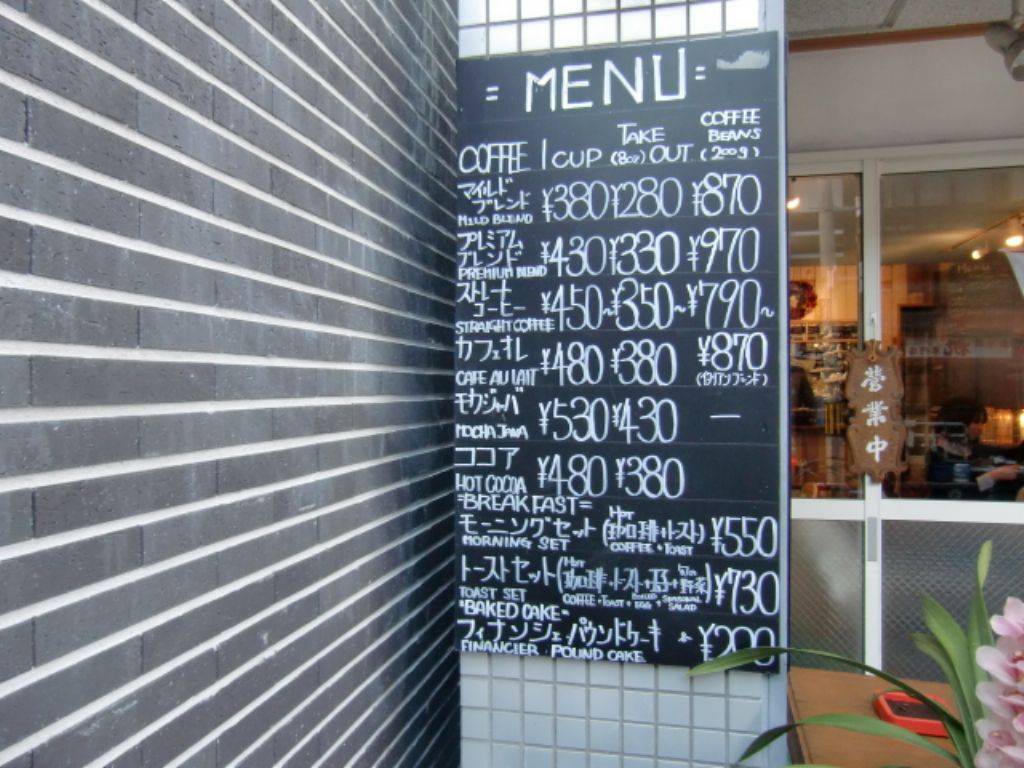 = MENU =
COFFEE 1 CUP (8oz) TAKE OUT COFFEE BEANS (200g)
マイルド ブレンド ¥380 ¥280 ¥870
MILD BLEND
プレミアム ブレンド ¥430 ¥330 ¥970
PREMIUM BLEND
ストレート コーヒー ¥450~ ¥350~ ¥790~
STRAIGHT COFFEE
カフェオレ ¥480 ¥380 ¥870
CAFE AU LAIT (イタリアンブレンド)
モカジャバ ¥530 ¥430 —
MOCHA JAVA
ココア ¥480 ¥380
HOT COCOA
=BREAKFAST=
モーニングセット (HOT 珈琲+トースト) ¥550
MORNING SET COFFEE + TOAST
トーストセット (HOT 珈琲+トースト+ ¥730
TOAST SET COFFEE + TOAST + BOILED EGG + SEASONAL SALAD
"BAKED CAKE"
フィナンシェ・パウンドケーキ ¥200
FINANCIER POUND CAKE
営業中